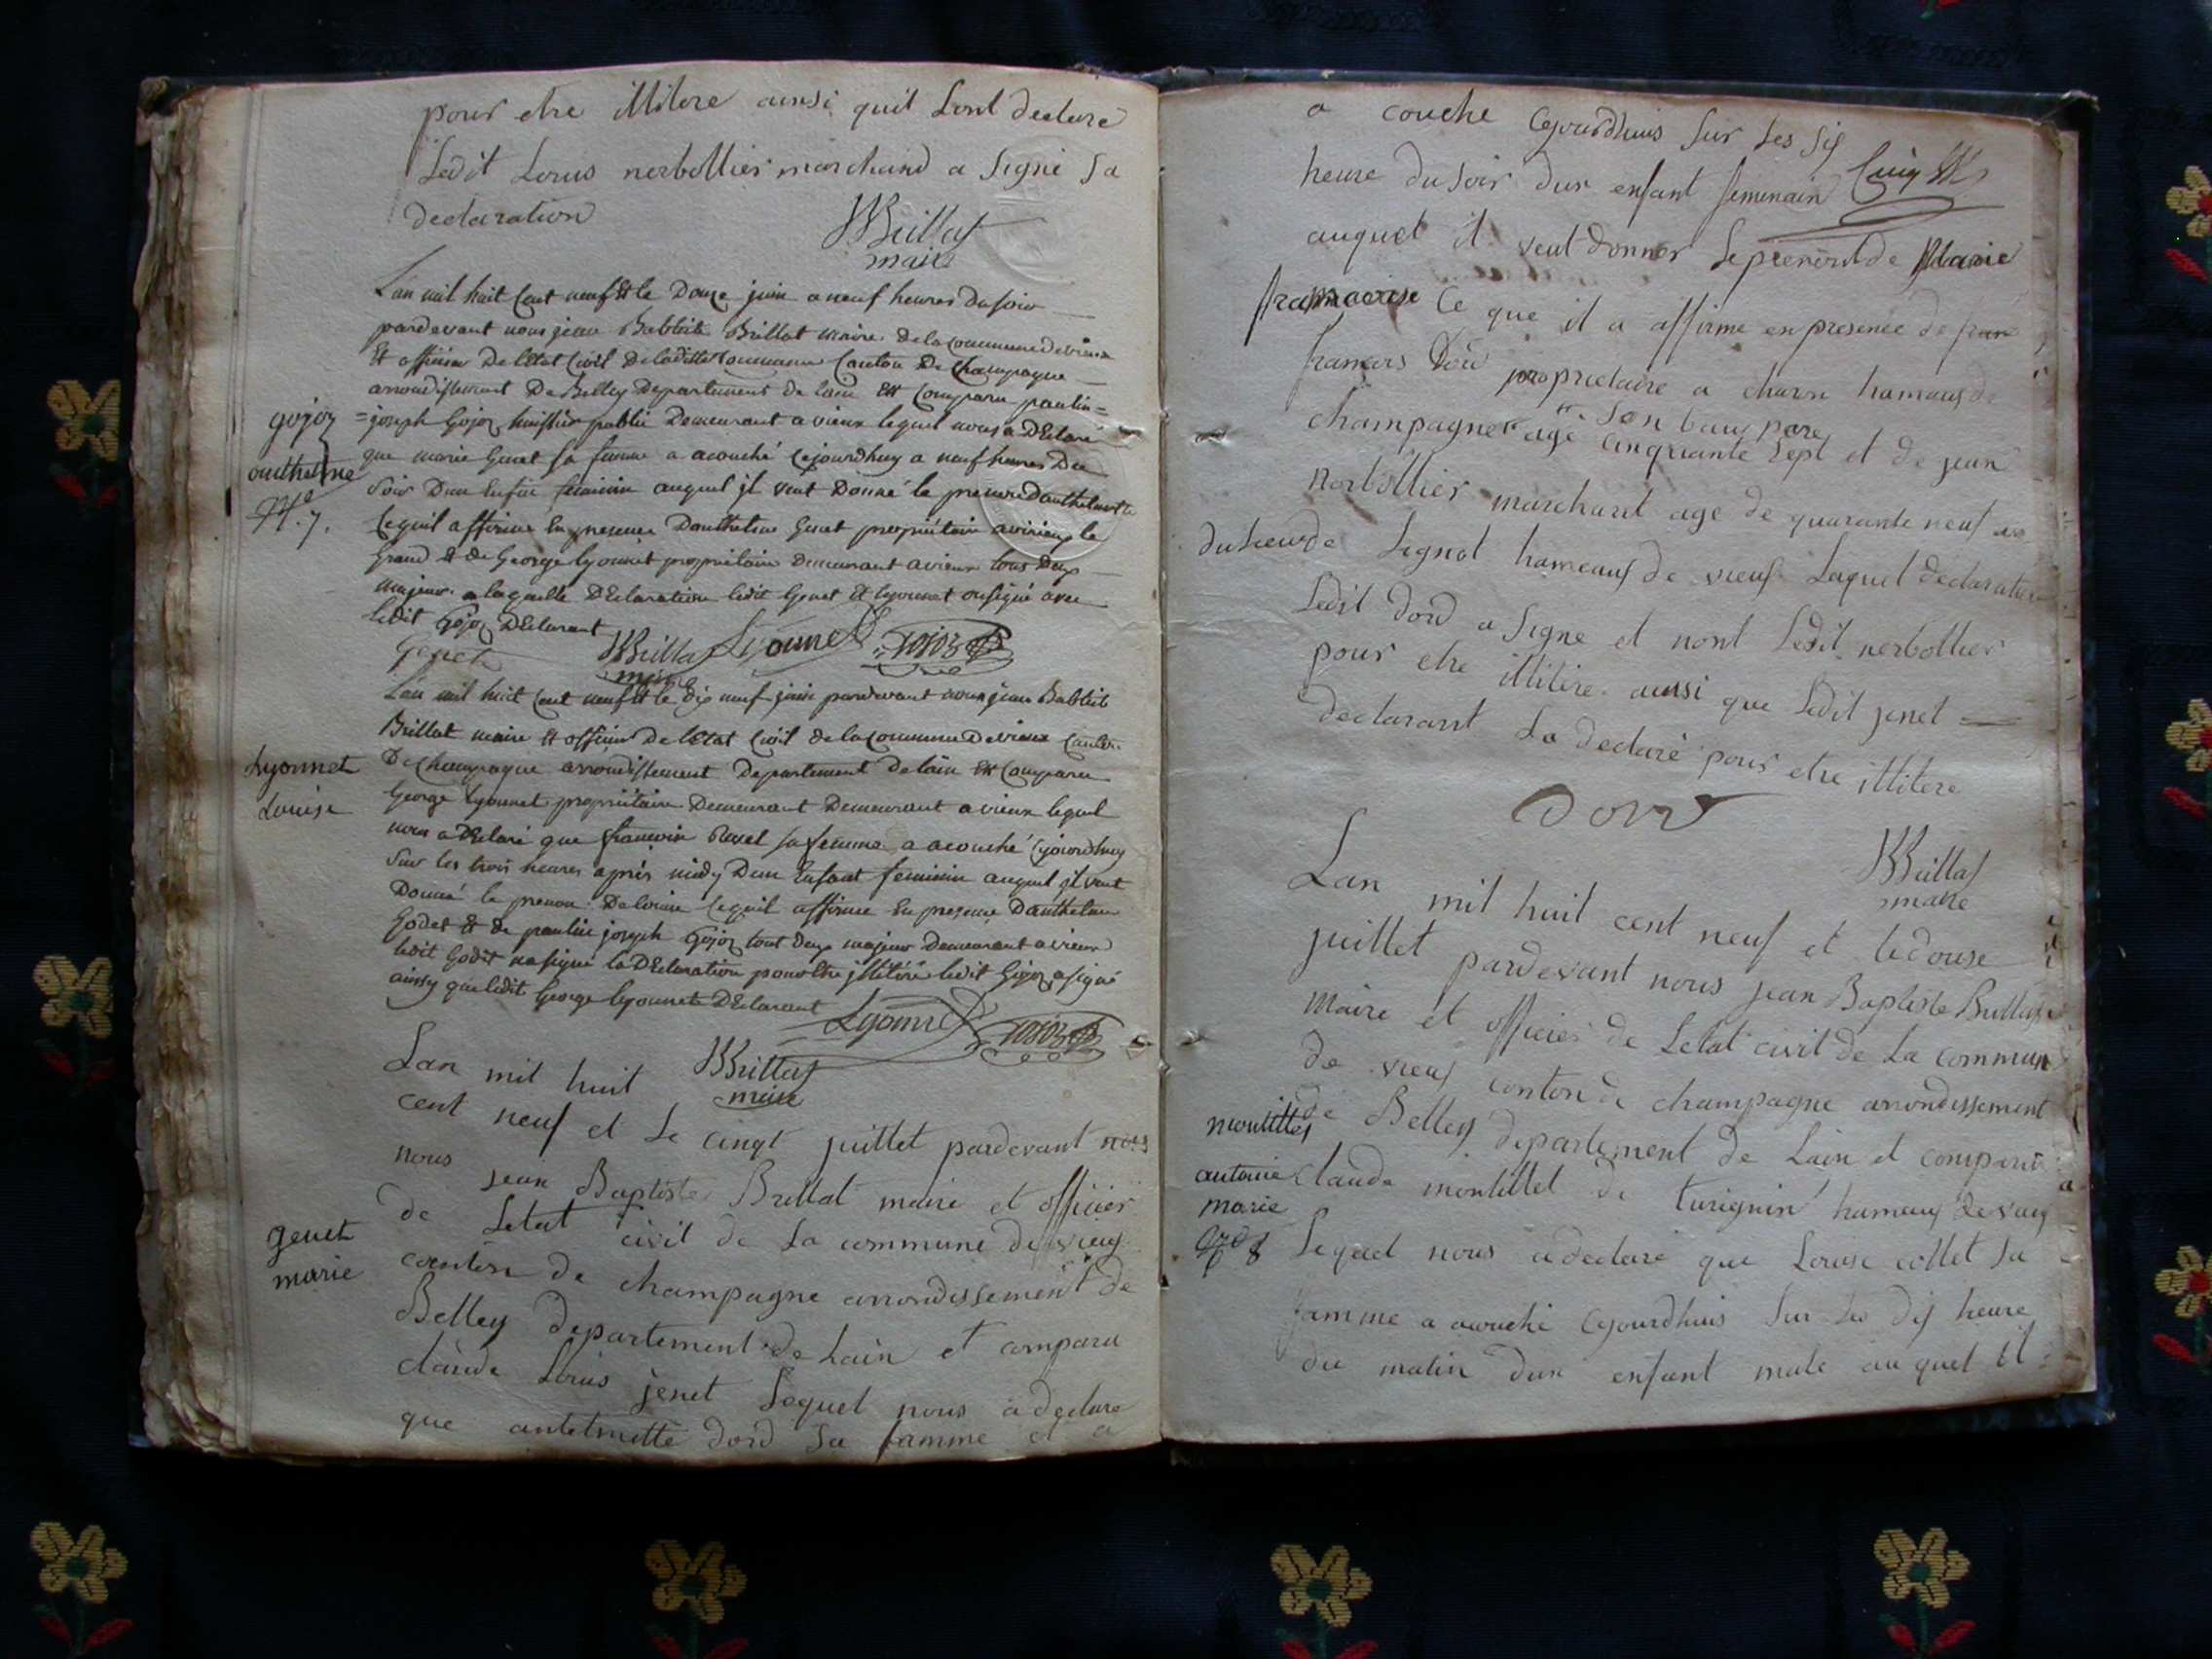 pour etre illitere ainsi quil Lont declare
Ledit Louis nerbollier marchand a signé sa
declaration
JBBrillat
maire
L'an mil huit cent neuf et le douze juin a neuf heures du soir
pardevant nous jean Babtiste Brillat maire de la commune de vieux
Et officier De letat Civil De laditte Commune Canton De Champagne
arrondissement De Belley Departement de lain Est Comparu paulin=
=joseph Gojoz huissier public Demeurant a vieux lequel nous a DEclaré
que marie Genet sa femme a acouché Cejourdhuy a neuf heures Du
soir Dun Enfan feminin auquel jl veut Donné le prenom Danthelmette
Cequil affirme En presence Danthelme Genet propriétaire a virieux le
Grand & de George lyonnet propriétaire Demeurant a vieux tous Deux
majeur a laquelle DEclaration ledit Genet Et lyonnet on signé avec
ledit Gojoz DEclarant
gojoz
anthelme
Genet
JBBrillat
maire
Lyonnet
Gojoz
L'an mil huit cent neuf Et le dix neuf juin pardevant nous jean Babtiste
Brillat maire Et officier De letat Civil de la Commune De vieux Canton
De Champagne arrondissement Departement de lain Est Comparu
George lyonnet propriétaire Demeurant Demeurant a vieux lequel
nous a DEclaré que sa femme a acouché Cejourdhuy
sur les trois heures après midy Dun Enfant feminin auquel jl veut
Donné le prenom De louise Cequil affirme En presence Danthelme
Godet Et de paulin joseph Gojoz tout deux majeur Demeurant a vieux
ledit Godet na signé la DEclaration pour Etre jllitéré ledit Gojoz a signé
ainsy que ledit George lyonnet DEclarant
Lyonnet
Louise
Lyonnet
Gojoz
JBBrillat
maire
Lan mil huit
cent neuf et Le cinqt juillet pardevant nous
nous jean Baptiste Brillat maire et officier
de Letat civil de La commune de vieux
conton de champagne arrondissement de
Belley departement de Lain et comparu
claude Louis jenet Lequel nous a declare
que antelmette dord sa famme et a
genet
marie
a couche Cejourdhuis sur Les six
heure du soir dun enfant femenain
auquel il veut donner Leprenont de Marie
framcoise Ce que il a affirme en presence de
francois Dord proprietaire a charon hameaux de
champagne son beau pere
age cinquante sept et de jean
norbollier marchand age de quarante neuf
du Lieu de Lignol hameaux de vieux Laquel declaration
Ledit dord a signe et nont Ledit nerbollier
pour etre illitere aussi que Ledit jenet
declarant La declaré pour etre illitere
Dord
JBBrillat
maire
Lan mil huit cent neuf et ledouse
juillet pardevant nous jean Baptiste Brillat
maire et officier de Letat civil de La commun
de vieux conton de champagne arrondissement
de Belley departement de Lain et comparu
claude montillet de turignin hameaux de vieux
Lequel nous a declaré que Louise collet sa
famme a acouche Cejourdhuis sur Les dix heure
du matin dun enfant male au quel il
montillet
antoine
marie
8